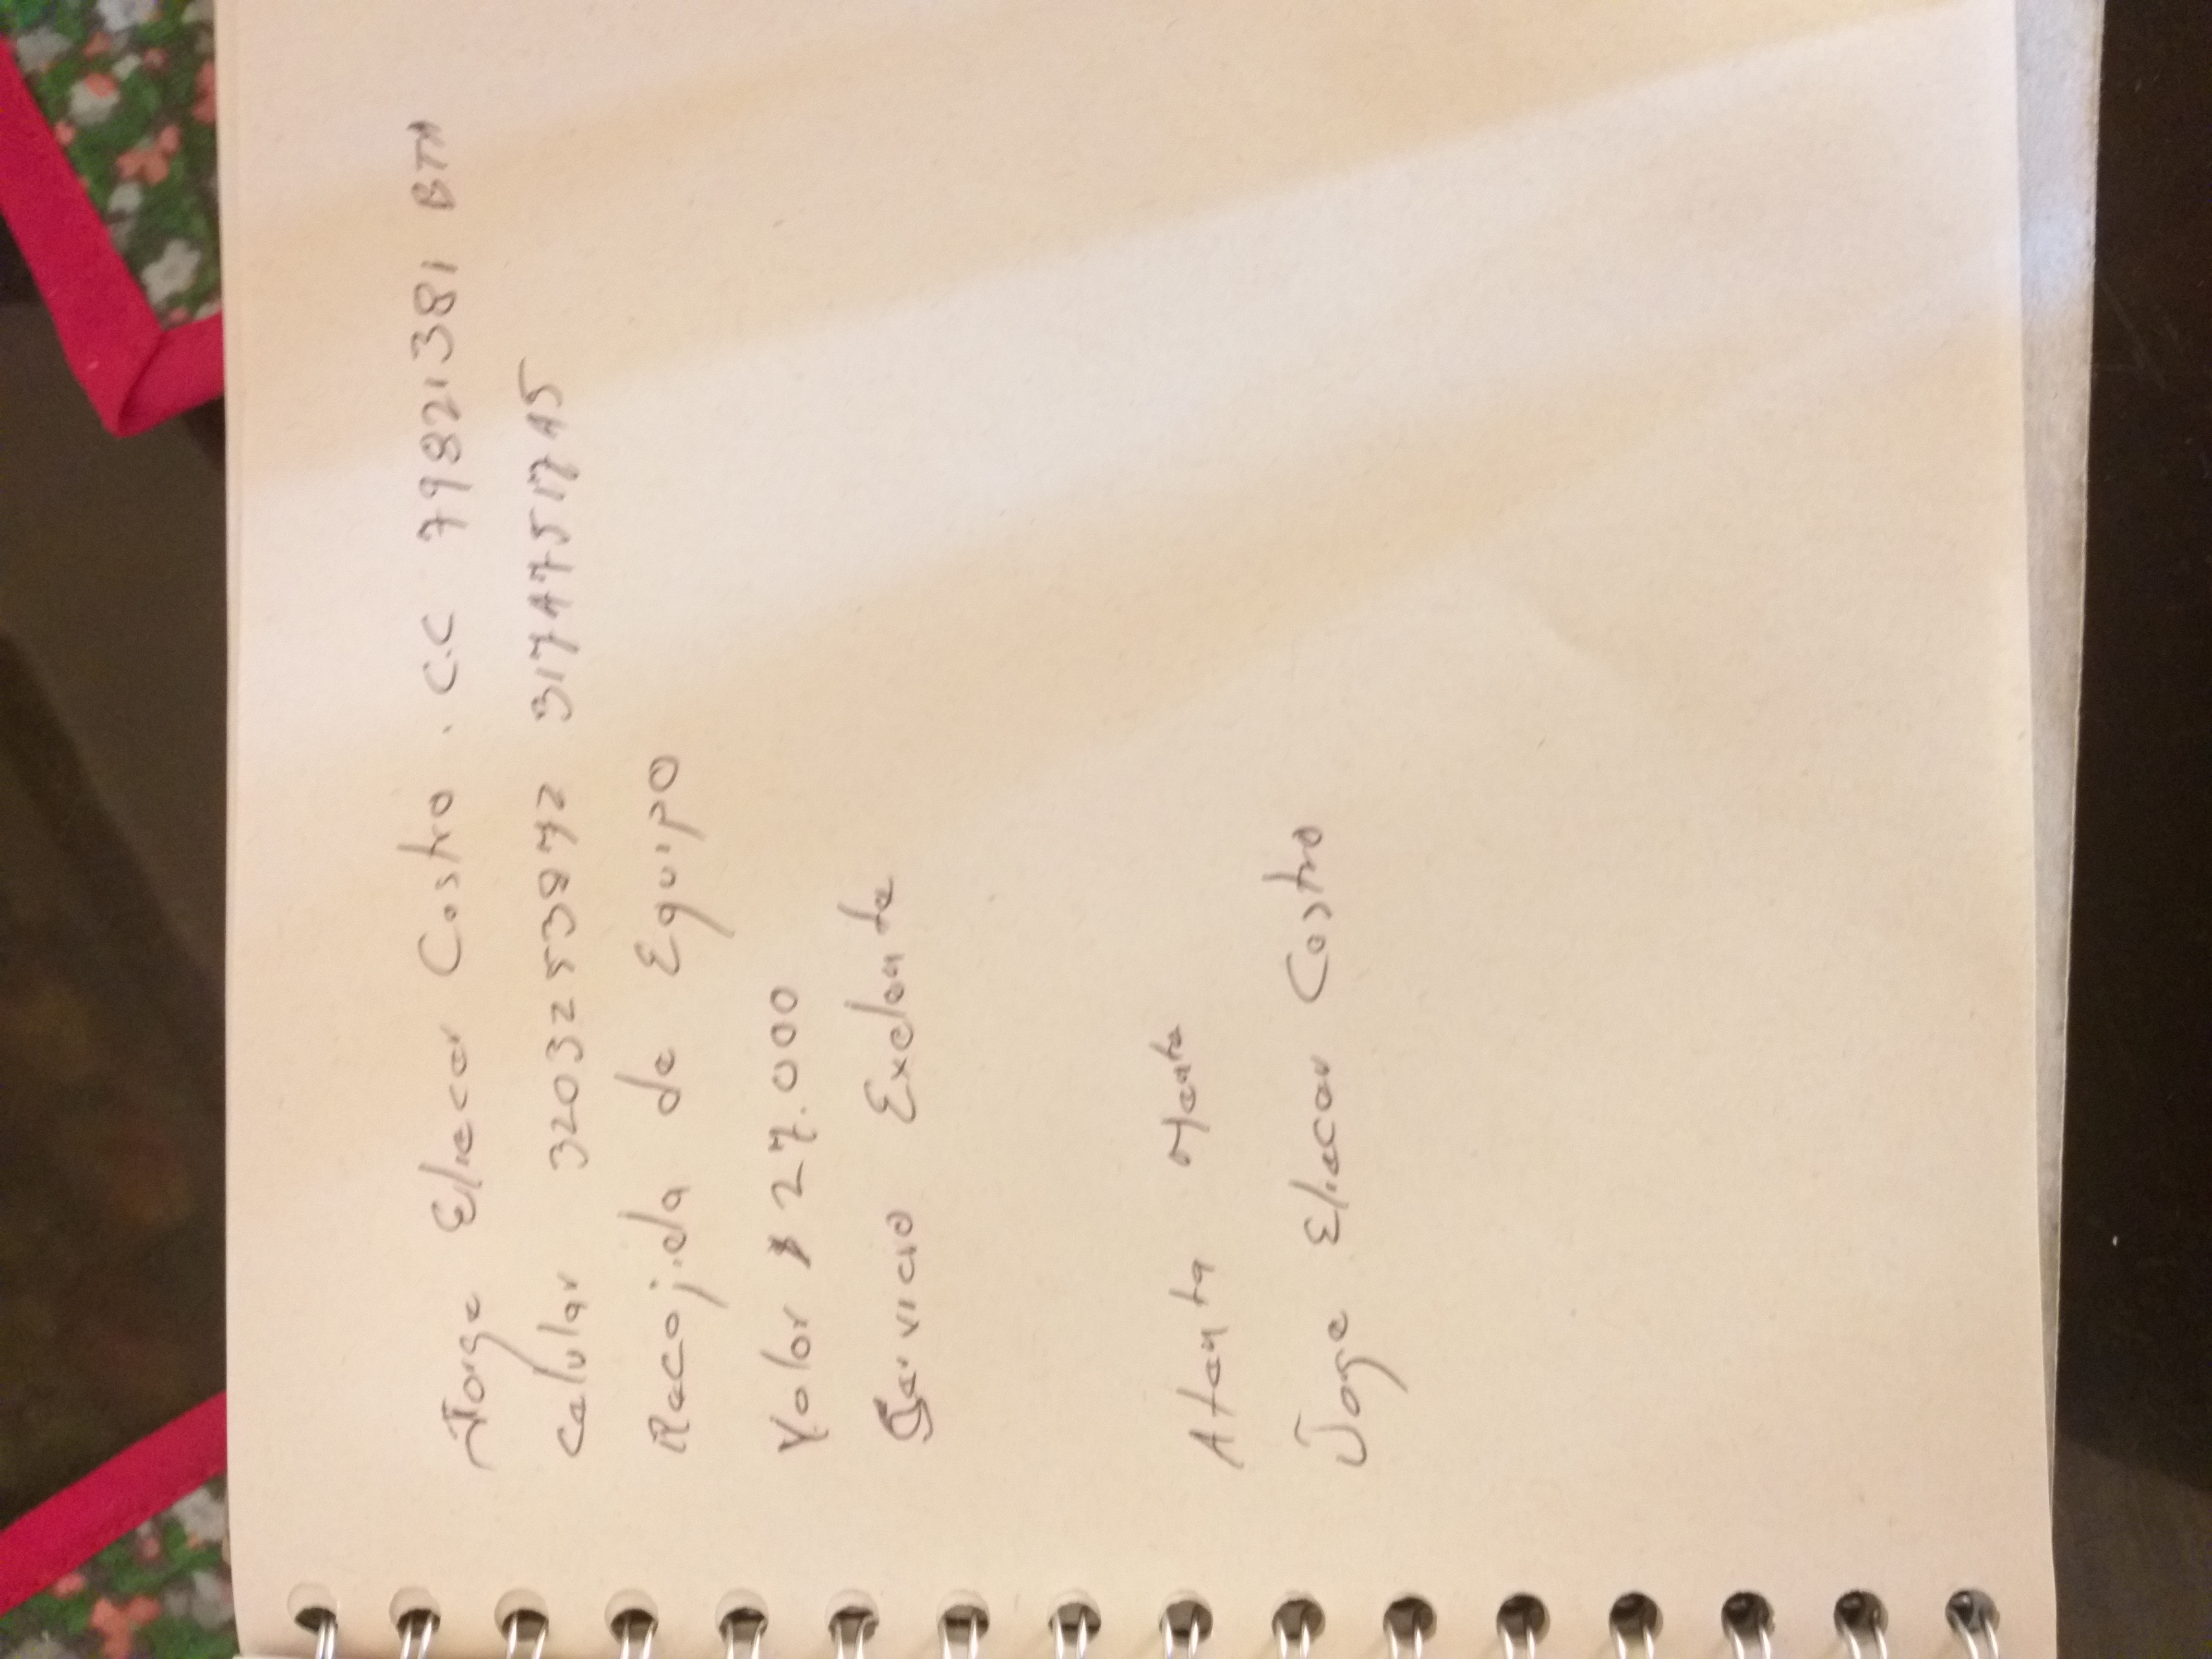 Jorge Eliecer Castro . C.C 79821381 BTA
Celular 3203253872 3174751745
Recojida de Equipo
Valor $ 27.000
Servicio Exelente
Atenta Mente
Jorge Eliecer Castro